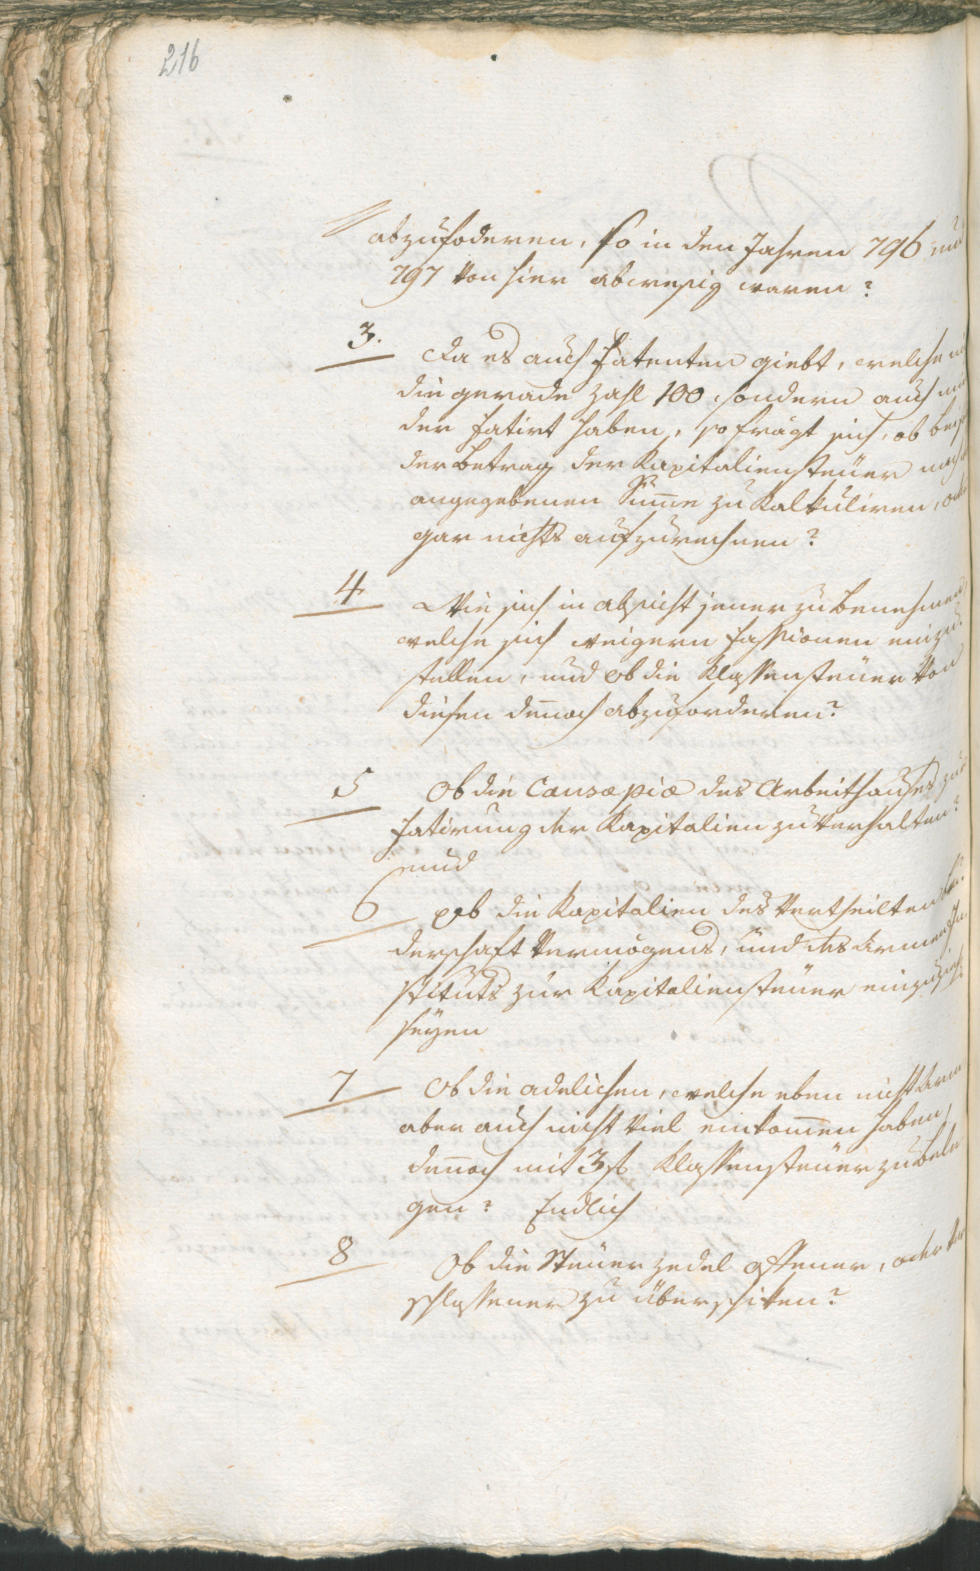 216
abzufoderen, so in den Jahren 796 und
797 von hier abwesig waren?
3. Da es auch Fatenten giebt, welche
die gerade Zahl 100. sondern auch
der fatirt haben, so frägt sich, ob
der Betrag der Kapitaliensteuer nach
angegebenen Sum̅e zu Kalkuliren, oder
gar nichts aufzurechnen?
4 Wie sich in absicht jener zu benehmen
welche sich weigern Fassionen einzu
stellen, und ob die Klassensteuer von
diesen den̅och abzuforderen?
5 Ob die Causæ piæ des Arbeithauses zur
Fatirung der Kapitalien zu verhalten?
und
6 Ob die Kapitalien des vertheilten
derschaft Vermögens, und des Armen In
stituts zur Kapitaliensteuer
seyen
7 Ob die adelichen, welche eben nicht Arm
aber auch nicht viel einkom̅en haben,
den̅och mit 3 f Klassensteuer zu bele
gen? Endlich
8 Ob die Steuer zedel offener, oder ver
schlossener zu überschiken?